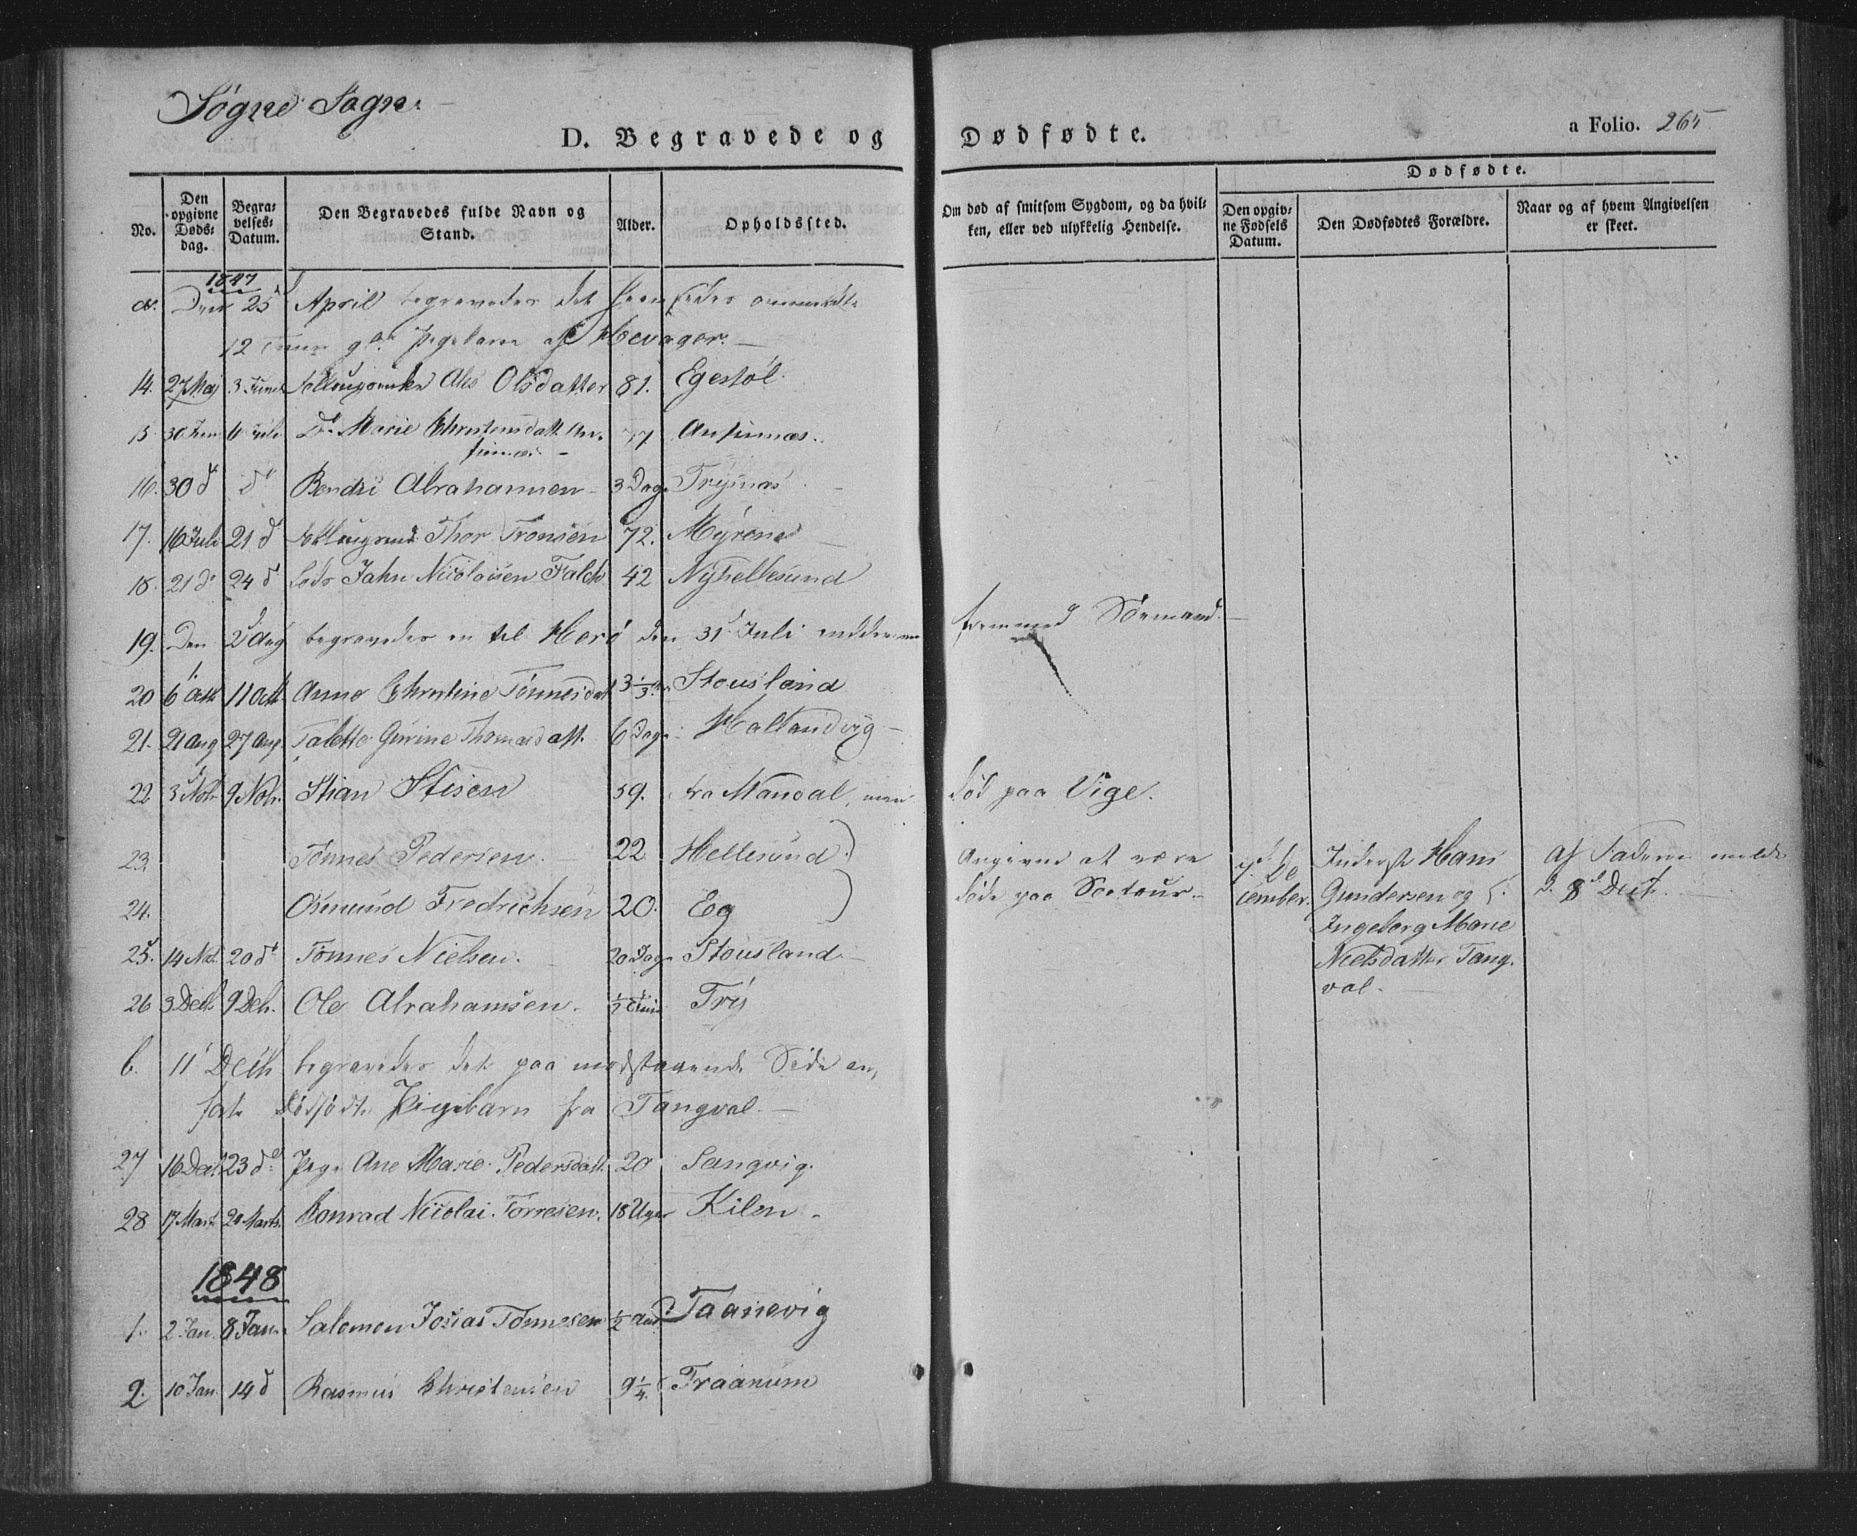 Søgne Sogn.
D. Begravede og Dødfødte.
a Folio. 265
No.
Den opgivne Døds-dag.
Begra-velses-Datum.
Den Begravedes fulde Navn og Stand.
Alder.
Opholdssted.
Om død af smitsom Sygdom, og da hvil-ken, eller ved ulykkelig Hendelse.
Dødfødte.
Den opgiv-ne Fødsels Datum.
Den Dødfødtes Forældre.
Naar og af hvem Angivelsen er skeet.
1847
a. Den 25 April begravedes det
12 Pigebarn af Høvåger.
14. 27 Maj 3 Juni Olsdatter 81. Egestøl.
15 30 Jun 6 Juli Do Marie Christensdatt 77
16. 30 d do Bendix Abrahamsen 3 Dage Trysnæs
17. 16 Juli 21 d Thor Tronsen 72. Myrene
18. 21 do 24 d Lods Jahn Nicolaisen Falch 42 Ny Hellesund
19. Den 2 Aug begravedes en til Herø den 31 Juli fremmed Sømand.
20 6 11 Anne Christine Tønnesdatt 3 Stousland
21. 21 Aug 27 Aug. Talette Gurine Thomasdatt. 6 Dage Høllandvig
22 3 Nov. 9 Nov. Stian Stisen 59. fra Mandal, men død paa Vige.
23 Tønnes Pedersen 22 Hellesund
24. Osmund Fredrichsen 20. Eg
Angivne at være døde paa Søetour
December. Inderst Hans Gundersen og Ingeborg Marie Nielsdatter Tangval.
Af Faderen meldt d. 8 Decbr.
25. 14 Nov. 20 do Tønnes Nielsen. 20 Dage Stousland
26 3 Decbr 9 Decbr. Ole Abrahamsen. 1/2 Try
b. 11 Decbr begravedes det paa modstaaende Side an-
førte dødfødte Pigebarn fra Tangval.
27 16 Dec. 23 do. Pige Ane Marie Pedersdatt. 20 Langvig.
28 17 Marts 20 Marts Conrad Nicolai Torresen. 18 Uger Kilen
1848
1. 2 Jan. 8 Jan. Salomon Josias Tønnesen 1/2 Aar Taanevig
2. 10 Jan. 14 d Rasmus Christensen 9 1/4. Fraanum